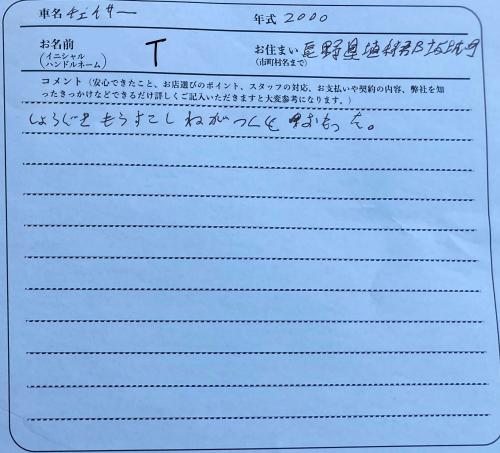 車名 チェイサー 年式 2000
お名前 T お住まい 長野県埴科郡坂城町
(イニシャル ハンドルネーム) (市町村名まで)
コメント(安心できたこと、お店選びのポイント、スタッフの対応、お支払いや契約の内容、弊社を知
ったきっかけなどできるだけ詳しくご記入いただきますと大変参考になります。)
しょうじきもうすこしねがつくとおもった。